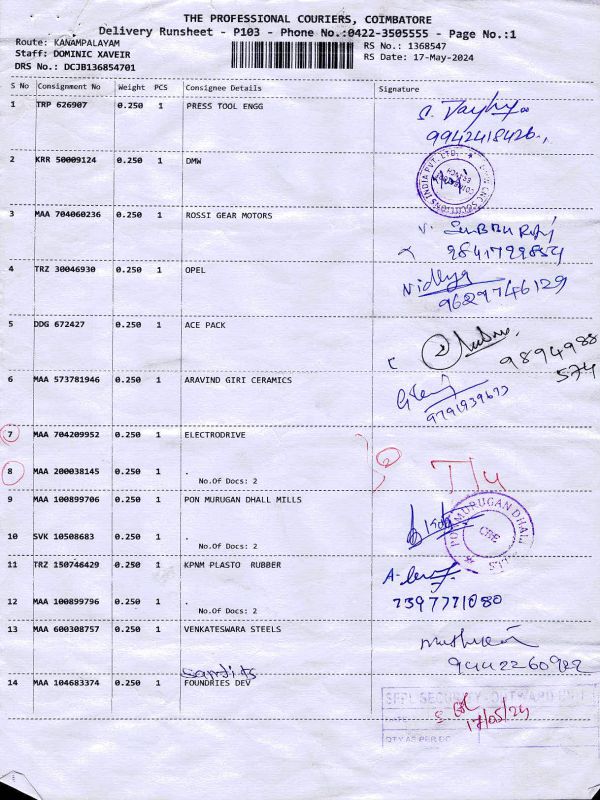 THE PROFESSIONAL COURIERS, COIMBATORE
Delivery Runsheet - P103 - Phone No.:0422-3505555 - Page No.:1
Route: KANAMPALAYAM
RS No.: 1368547
Staff: DOMINIC XAVEIR
RS Date: 17-May-2024
DRS No.: DCJB136854701
S No Consignment No Weight PCS Consignee Details Signature
1 TRP 626907 0.250 1 PRESS TOOL ENGG
9942418426
2 KRR 50009124 0.250 1 DMW
3 MAA 704060236 0.250 1 ROSSI GEAR MOTORS
9841799854
4 TRZ 30046930 0.250 1 OPEL
Nidhya
9629746129
5 DDG 672427 0.250 1 ACE PACK
9894988
574
6 MAA 573781946 0.250 1 ARAVIND GIRI CERAMICS
7 MAA 704209952 0.250 1 ELECTRODRIVE
8 MAA 200038145 0.250 1 .
No.Of Docs: 2
9 MAA 100899706 0.250 1 PON MURUGAN DHALL MILLS
PON MURUGAN DHALL MILLS
CBE
10 SVK 10508683 0.250 1 .
No.Of Docs: 2
11 TRZ 150746429 0.250 1 KPNM PLASTO RUBBER
7397771080
12 MAA 100899796 0.250 1 .
No.Of Docs: 2
13 MAA 600308757 0.250 1 VENKATESWARA STEELS
9442260922
14 MAA 104683374 0.250 1 FOUNDRIES DEV
SFPL SECURITY-OUTWARD
DATE
17/05/24
QTY AS PER DC